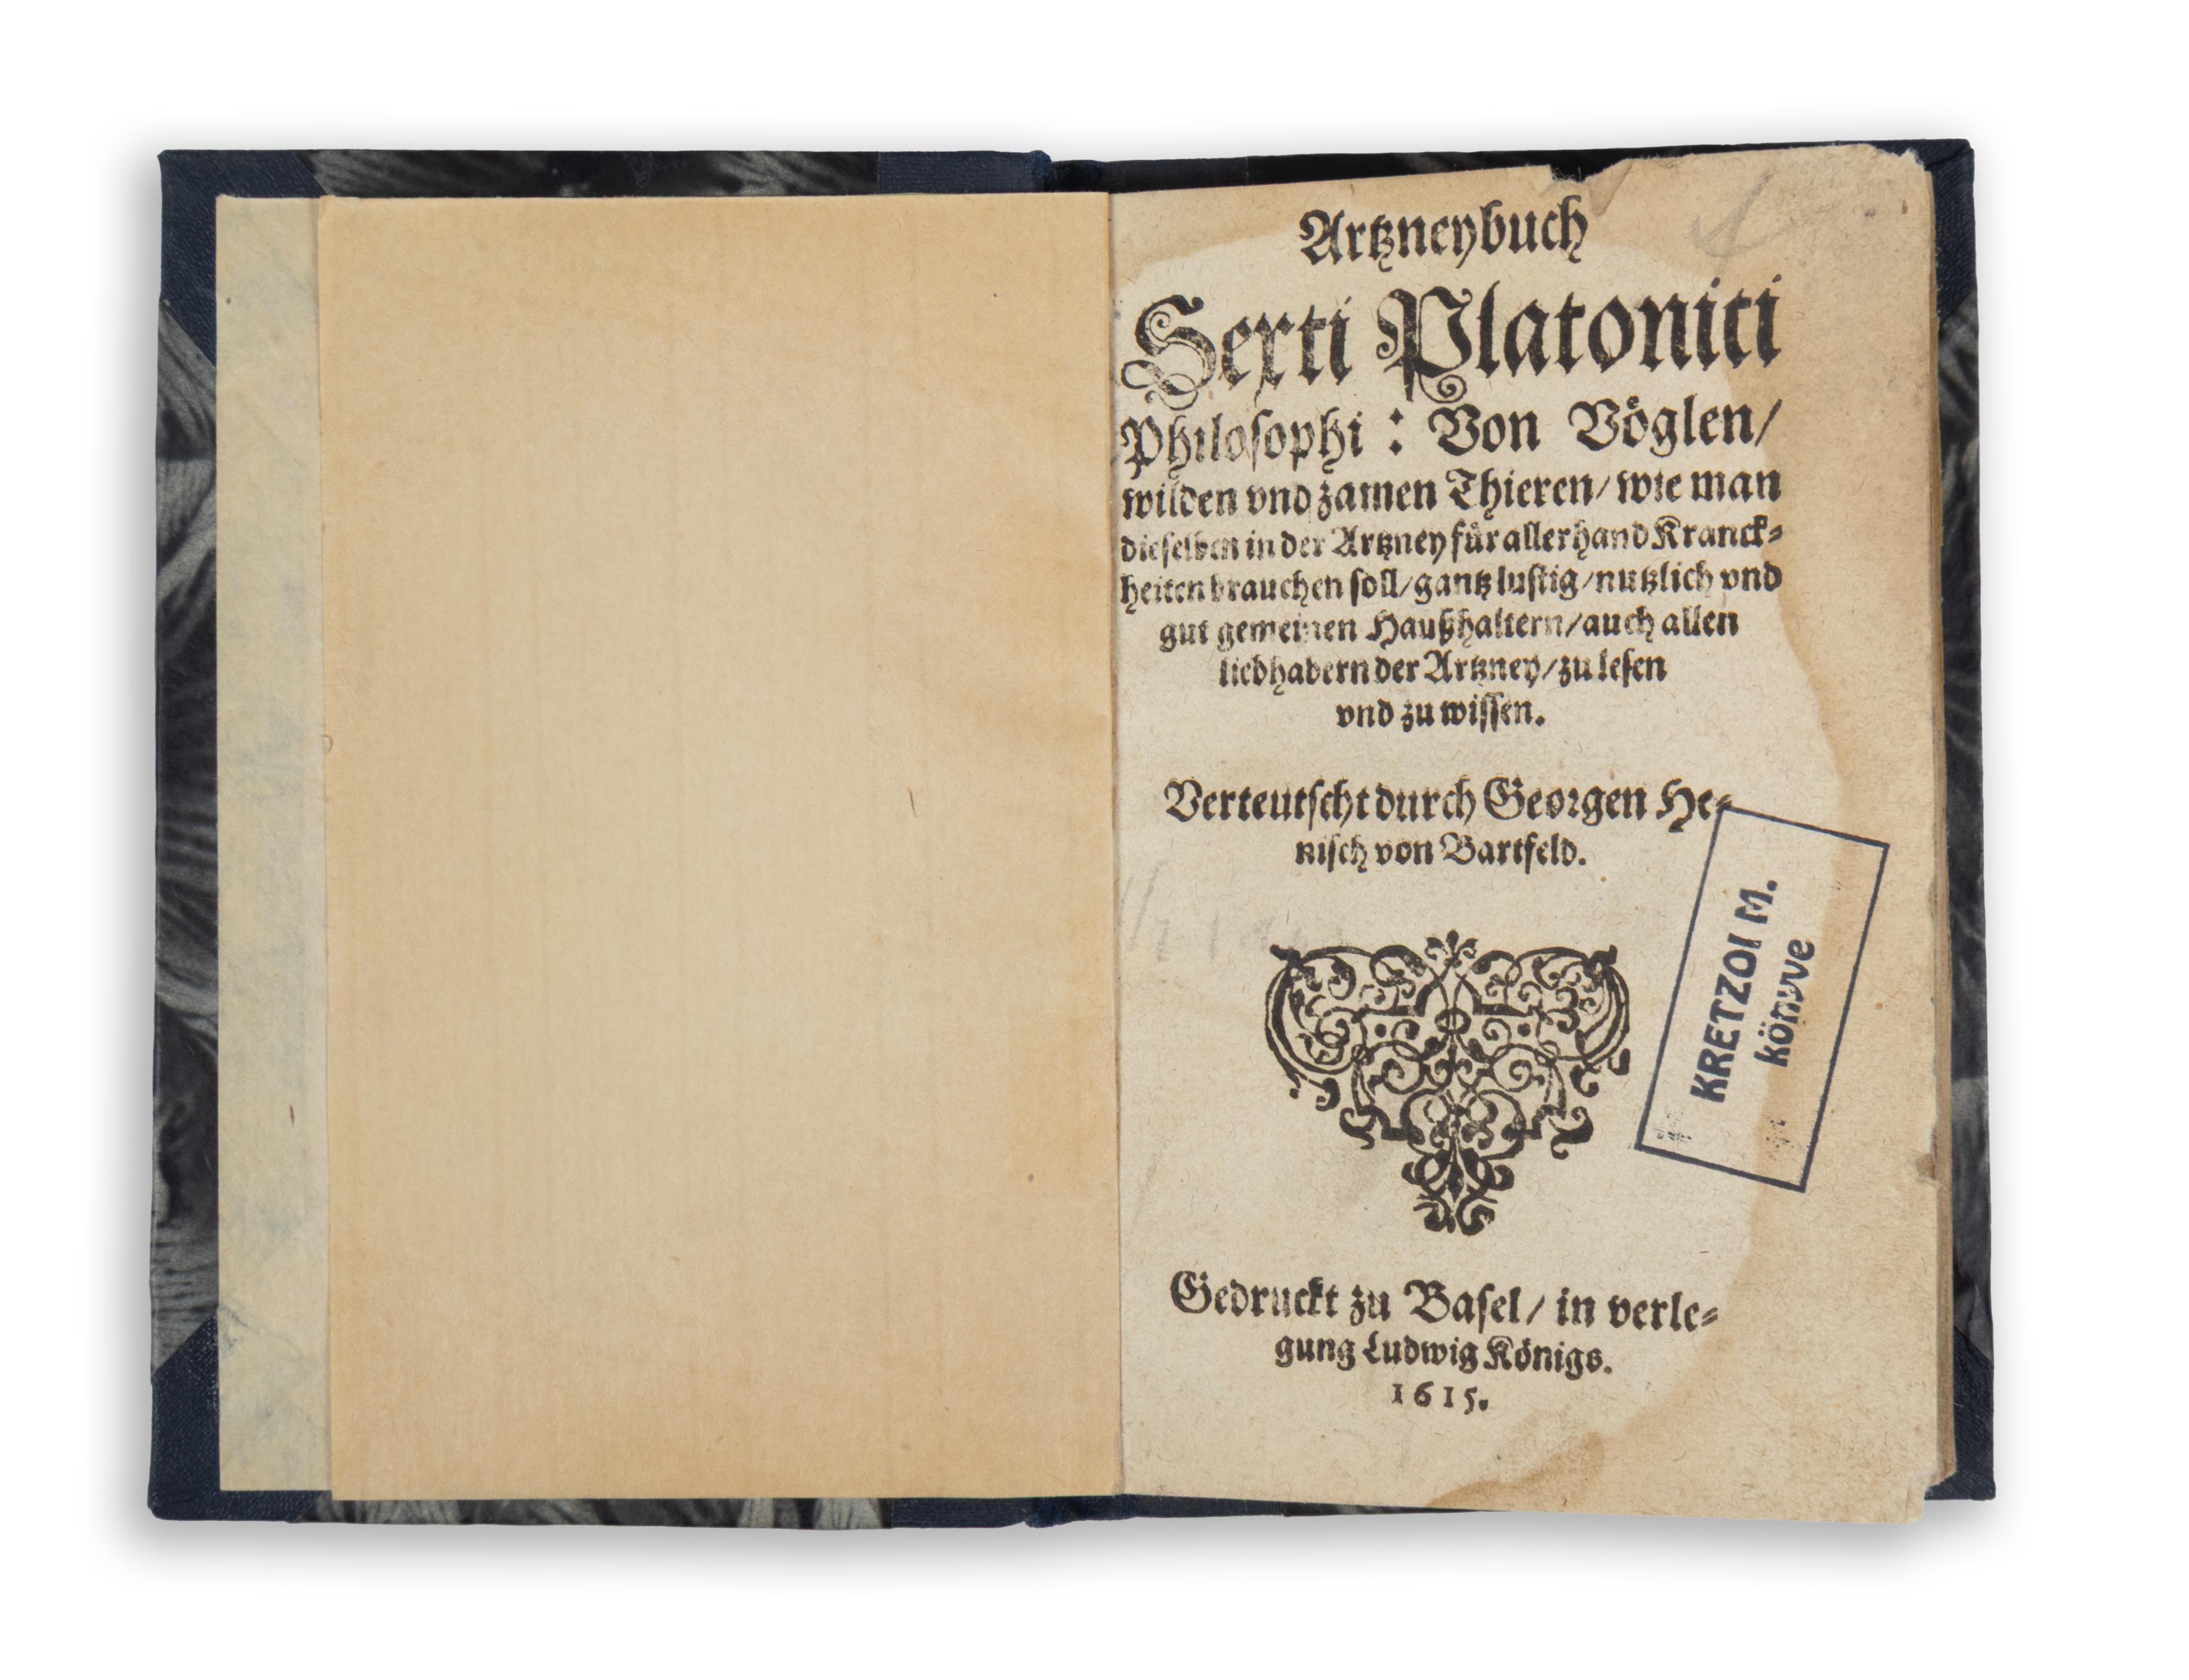 Artzneybuch
Sexti Platonici
Philosophi: Von Vöglen/
wilden vnd zamen Thieren/ wie man
dieselben in der Artzney für allerhand Kranck-
heiten brauchen soll/ gantz lustig/ nutzlich vnd
gut gemeinen Haußhaltern/ auch allen
liebhabern der Artzney/ zu lesen
vnd zu wissen.
Verteutscht durch Georgen He-
nisch von Bartfeld.
KRETZOI M.
könyve
Gedruckt zu Basel/ in verle-
gung Ludwig Königs.
1615.